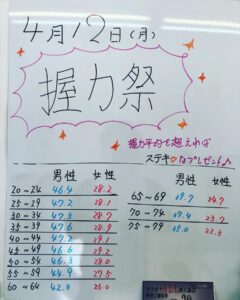 4月12日(月)
握力祭
握力平均を超えれば
ステキ♡なプレゼント♪
男性 女性
20~24 46.4 28.2
25~29 47.2 28.1
30~34 47.3 28.7
35~39 47.3
40~44 47.2 29.1
45~49 46.6 29.2
50~54 46.3 28.0
55~59 44.9 27.5
60~64 42.8 26.0
男性 女性
65~69 24.7
70~74 37.4 23.7
75~79 35.0 22.3